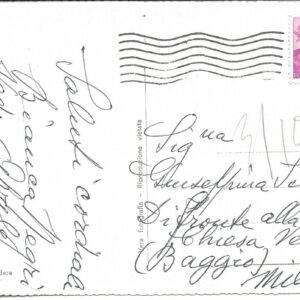 Saluti cordiali
Bianca Negri
Vera fotografia - Riproduzione vietata
Sig.na
Giuseppina
Di fronte alla
Chiesa Ve
(Baggio)
Mil